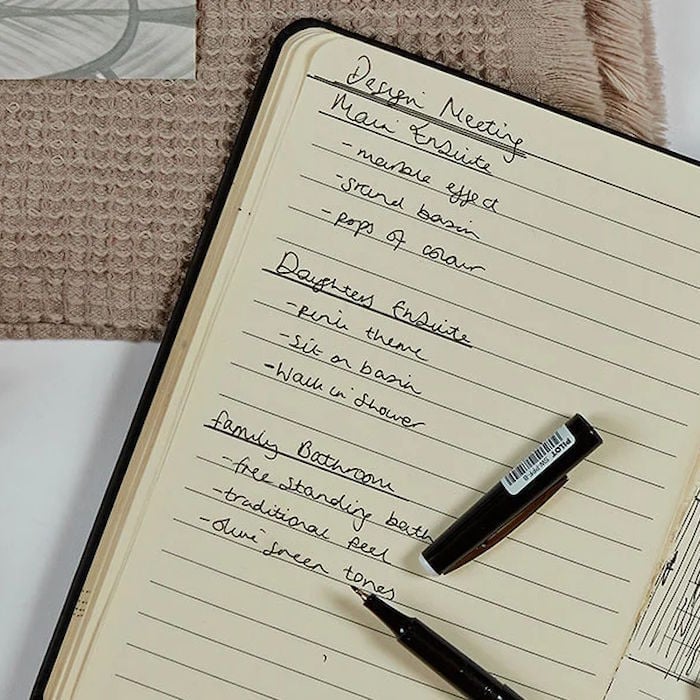 Design Meeting
Main Ensuite
- marble effect
- stand basin
- pops of colour
Daughters Ensuite
- pink theme
- sit on basin
- Walk in shower
Family Bathroom
- free standing bath
- traditional feel
- olive green tones
PILOT
SW-PPF-B